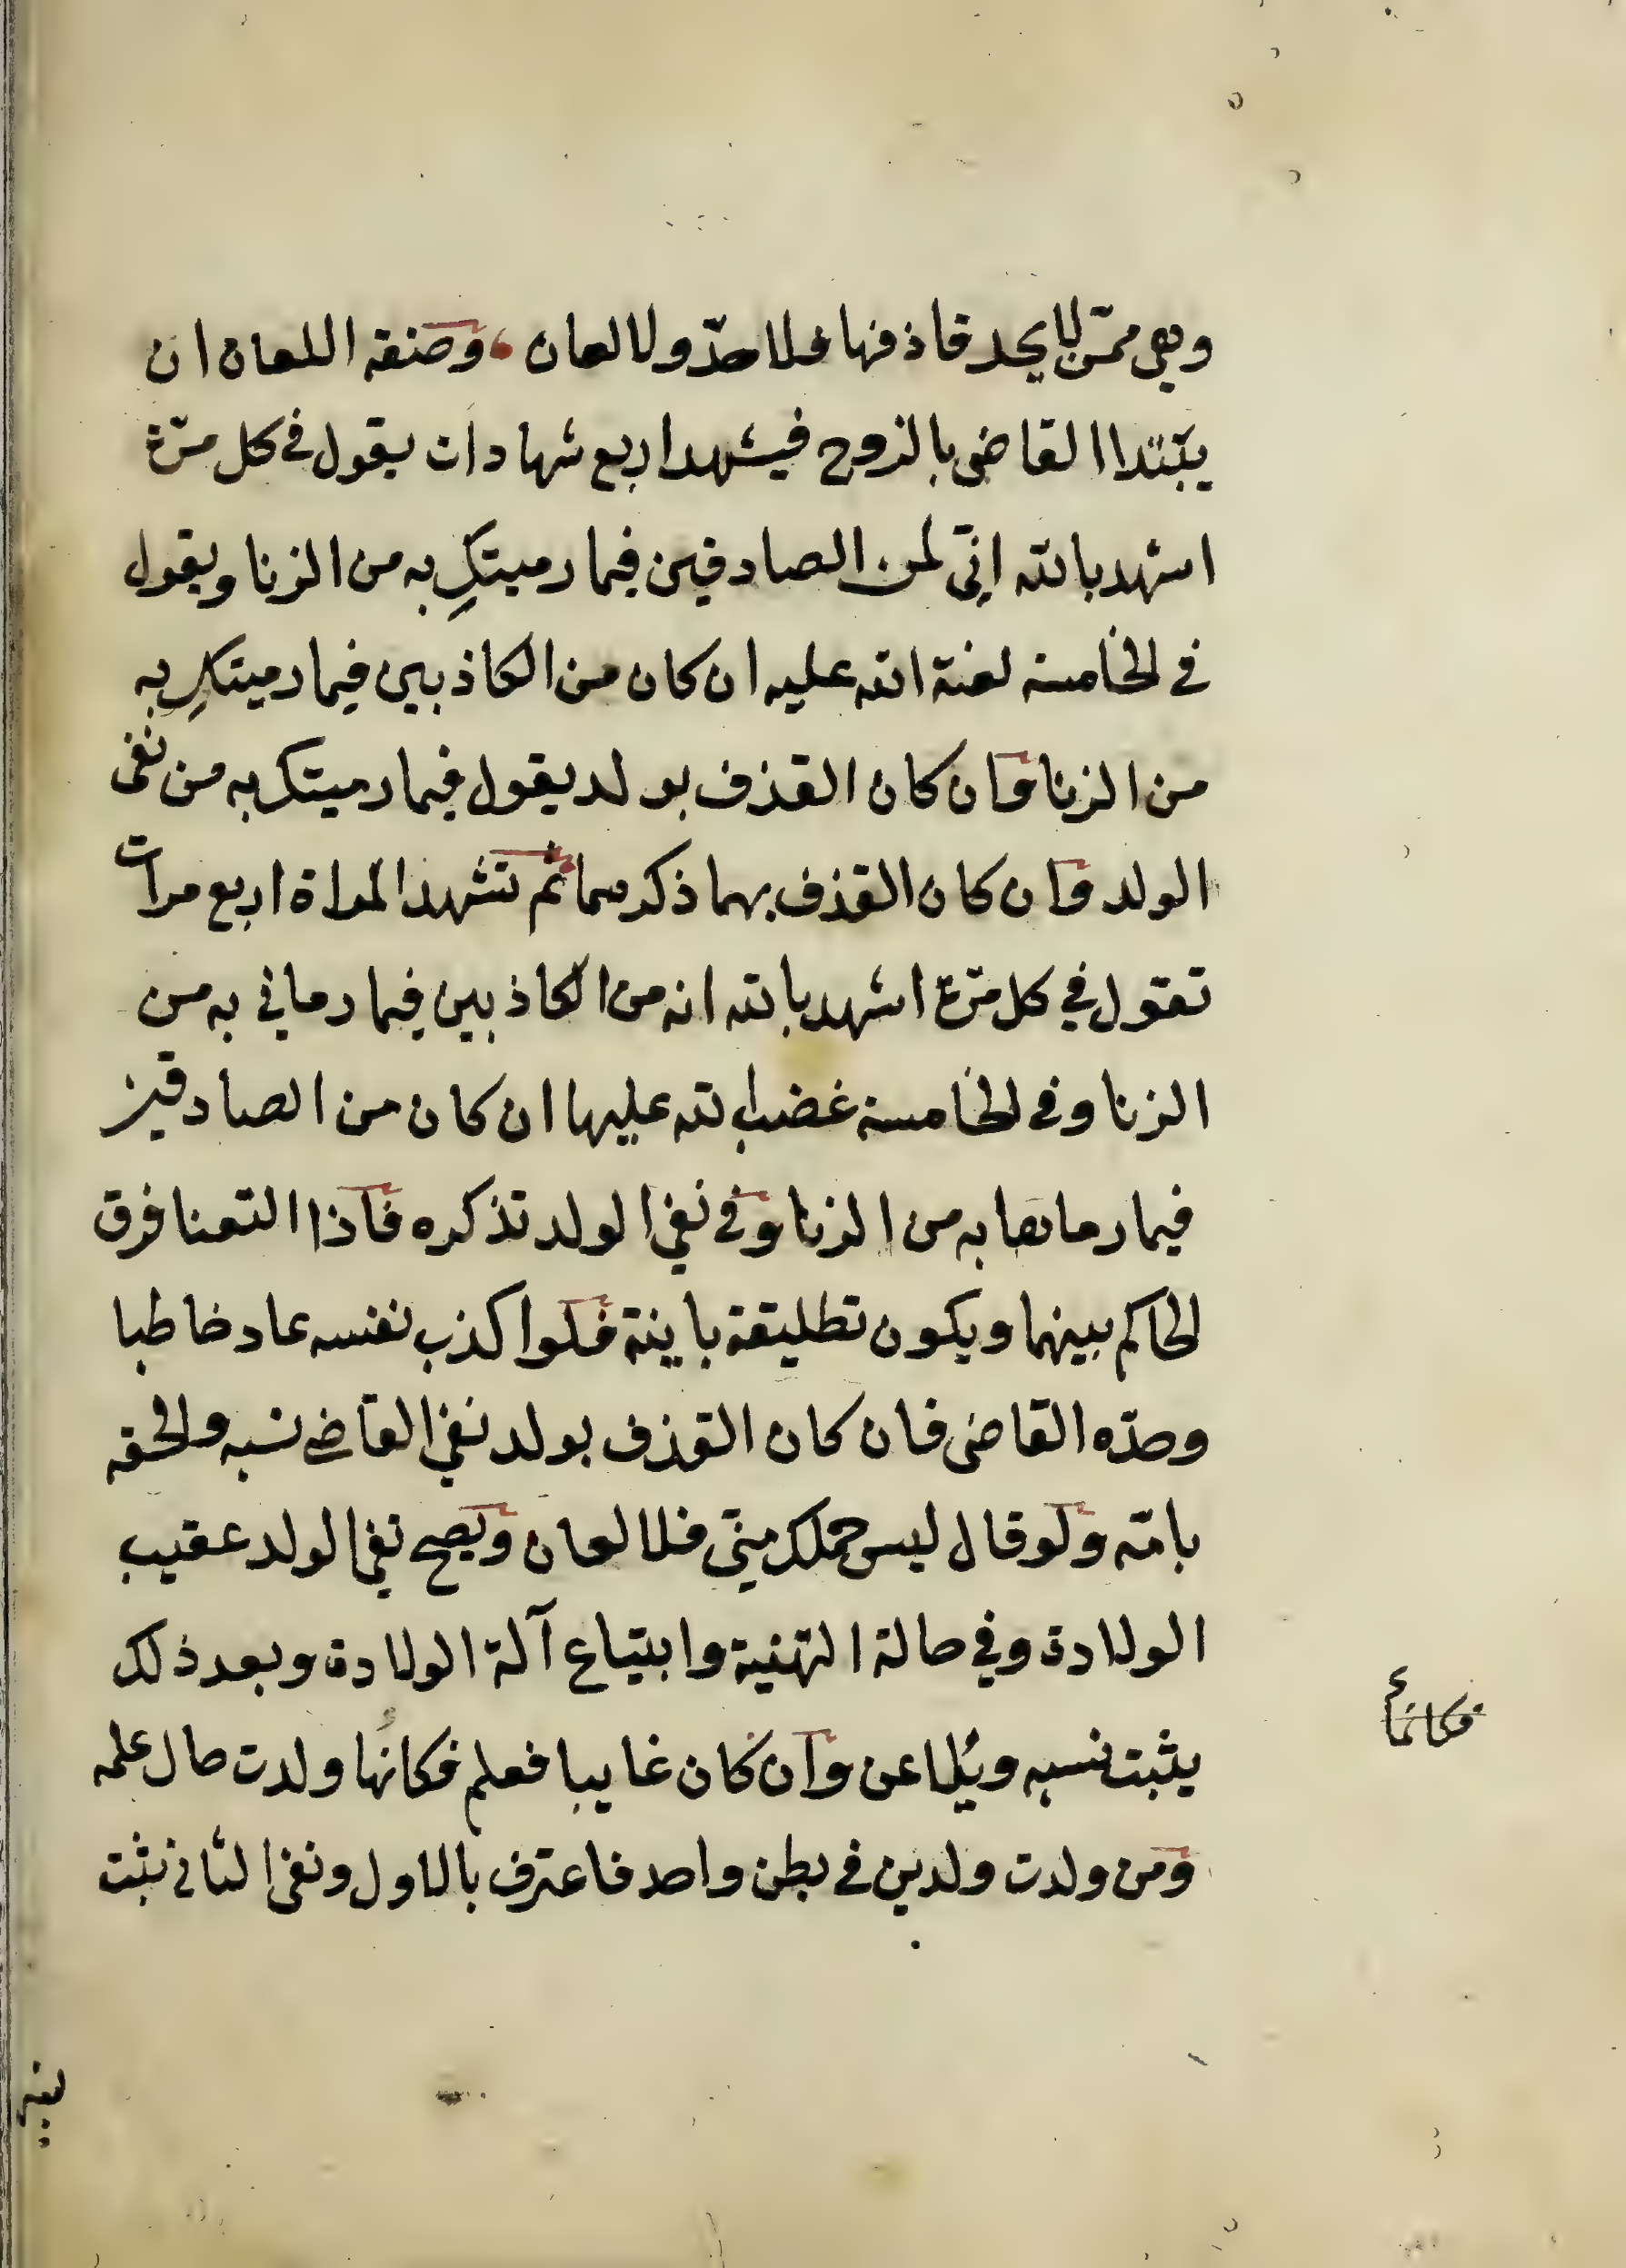 وهي ممّن لا يحد قاذفها فلا حدّ ولا لعان، وصفة اللعان ان
يبتدا القاضي بالزوج فيشهد اربع شهادات يقول في كل مرّة
اشهد بالله انّي لمن الصادقين فيما رميتكِ به من الزنا ويقول
في الخامسة لعنة الله عليه ان كان من الكاذبين فيما رميتكِ به
من الزنا وان كان القذف بولد يقول فيما رميتك به من نفى
الولد وان كان القذف بهما ذكرهما ثم تشهد المراة اربع مرات
تقول في كل مرّة اشهد بالله انه من الكاذبين فيما رماني به من
الزنا وفي الخامسة غضب الله عليها ان كان من الصادقين
فيما رماها به من الزنا وفي نفي الولد تذكره فاذا التعنا فرق
الحاكم بينهما ويكون تطليقة باينة فلو اكذب نفسه عاد خاطبا
وحدّه القاضى فان كان القذف بولد نفي القاضي نسبه والحقه
بامّه ولو قال ليس حملك منّي فلا لعان ويصح نفي الولد عقيب
الولادة وفي حالة التهنية وابتياع آلة الولادة وبعد ذلك
يثبت نسبه ويُلاعن وان كان غايبا فعلم فكانها ولدت حال علمه
ومن ولدت ولدين في بطن واحد فاعترف بالاول ونفى الثاني ثبت
فكانما